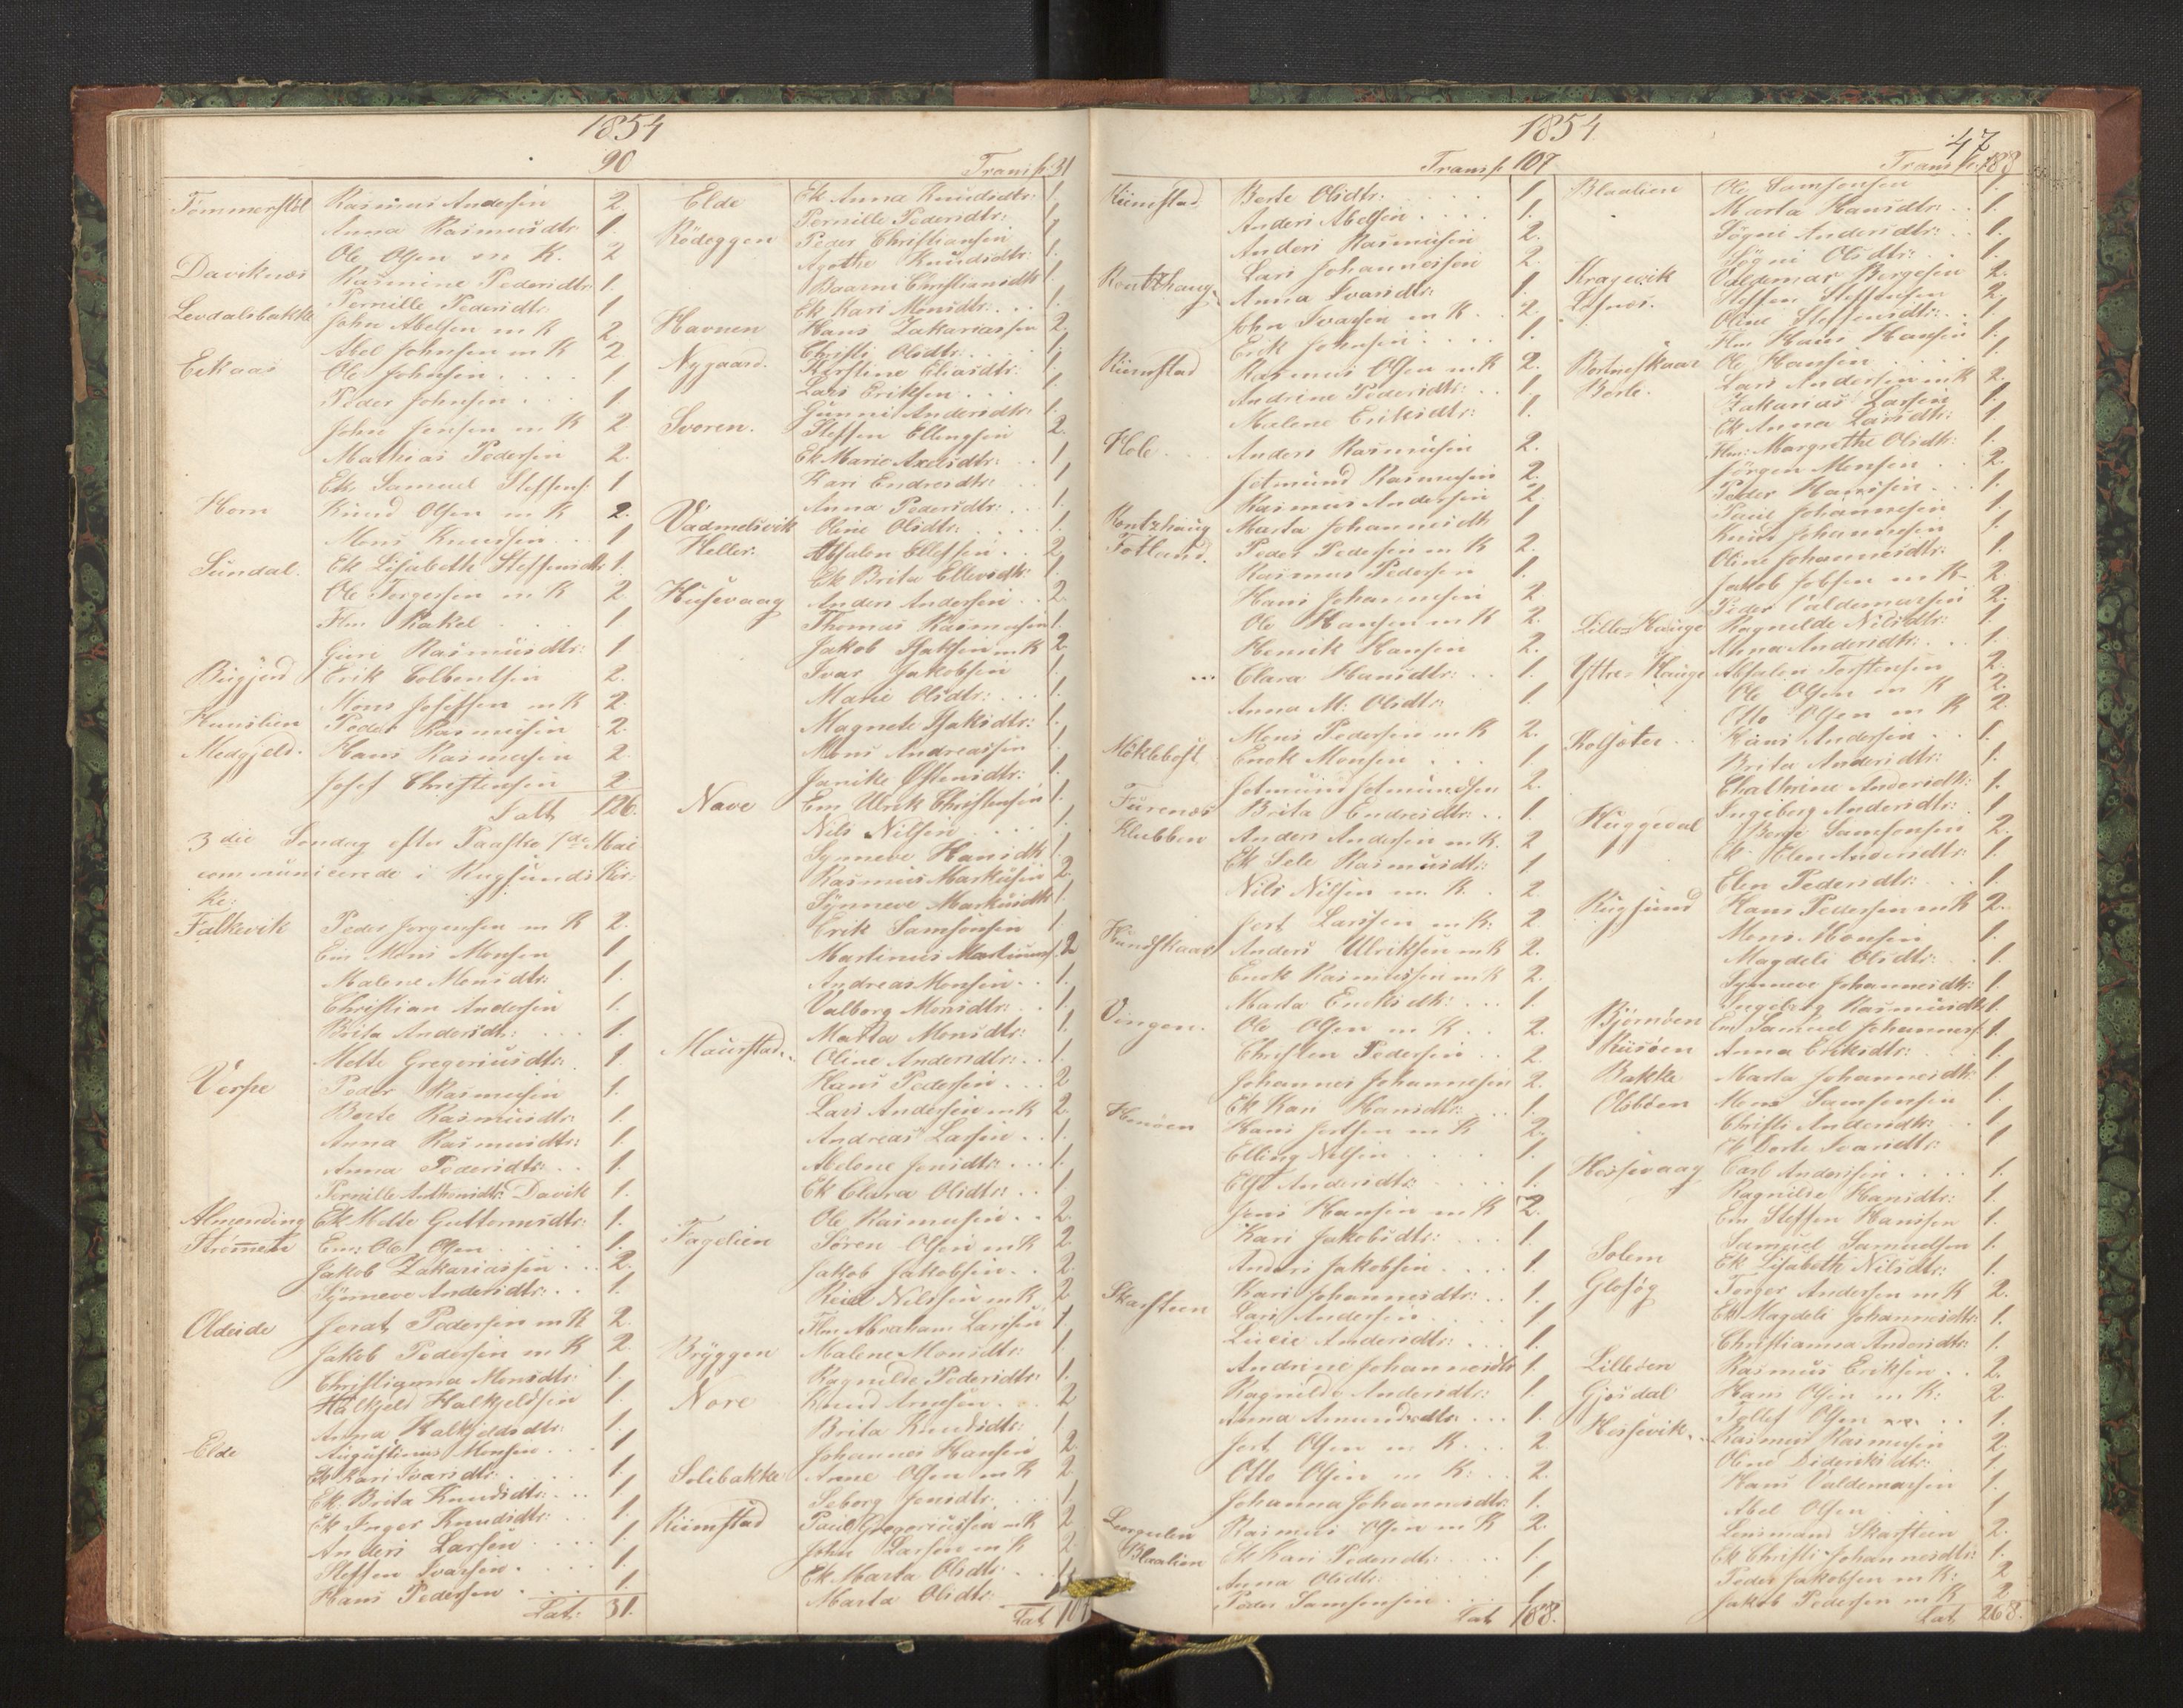 1854
90
Tømmerstøl Rasmus Andersen 2.
Anna Rasmusdtr: 1.
Ole Olsen m K. 2
Daviknæs Rasmine Pedersdtr 1.
Pernille Pedersdtr: 1
Levdalsbakke John Abelsen m K 2
Abel Johnsen m K 2
Eikaas Ole Johnsen 1
Peder Johnsen 1.
John Jensen m K 2
Mathias Pedersen 2.
Ek. Samuel Steffens: 1
Horn Knud Olsen m K 2.
Mons Knudsen 1
Sundal. Ek Lisabeth Steffensdtr 1.
Ole Torgersen m K 2.
Flm Rakel 1
Guri Rasmusdtr: 1
Erik Colbentsen 2.
Mons Josefsen m K 2
Peder Rasmusen 2.
Medgjeld. Hans Rasmusen 2
Josef Christensen 2.
Salt. 126.
3die Søndag efter Paaske 7de Mai
communicerede i Rugsunds Kir-
ke:
Falkevik Peder Jørgensen m K 2.
Em Mons Monsen 1
Malene Monsdtr: 1.
Christian Andersen 1.
Brita Andersdtr: 1.
Mette Gregoriusdtr: 1.
Verpe Peder Rasmusen 1.
Berte Rasmusdtr: 1.
Anna Rasmusdtr: 1
Anna Pedersdtr: 1.
Pernille Anthonsdtr: Davik 1.
Almending Ek Mette Guttormsdtr: 1.
Strømmen Em: Ole Olsen 1.
Jakob Zakariassen 2.
Synneve Andersdtr: 1.
Oldeide Jerat Pedersen m K 2.
Jakob Pedersen m K 2.
Christianna Monsdtr: 1.
Halkjeld Halkjeldsen 1.
Anna Halkjeldsdtr: 1.
Elde Augustinus Monsen 1
Ek Kari Ivarsdtr: 1.
Ek. Brita Knudsdtr: 1.
Ek Inger Knudsdtr: 1.
Anders Larsen 1.
Steffen Ivarsen 1.
Hans Pedersen 1.
Lat: 31.
Transp: 31
Elde Ek Anna Knudsdtr: 1.
Pernille Pedersdtr: 1
Rødeggen Peder Christiansen
Agethe Knudsdtr: 1.
Baarni Christiansdtr 1.
Ek Kari Monsdtr: 1.
Havnen Hans Zakariassen 2.
Christi Olsdtr: 1.
Nygaard. Kirstene Eliasdtr: 1
Lars Eriksen 1
Gunni Andersdtr: 1.
Svoren. Steffen Ellingsen 2.
Ek Marie Axelsdtr: 1
Kari Endresdtr: 1
Anna Pedersdtr: 1.
Vadmelsvik Oline Olsdtr: 1.
Heller: Absalon Ellefsen 2
Ek Brita Ellevsdtr: 1.
Husevaag Anders Andersen 2
Thomas Rasmusen 1.
Jakob Isaksen m K 2
Ivar Jakobsen 1
Marie Olsdtr: 1.
Magnete Isaksdtr: 1.
Mons Andreassen 1
Janike Ostensdtr: 1.
Nave Em Ulrik Christensen 1.
Nils Nilsen 1.
Synneve Hansdtr 1.
Rasmus Markusen 2
Synneve Markusdtr 1.
Erik Samsonsen 1
Martinus Martinus: 2
Andreas Monsen 1.
Valborg Monsdtr: 1.
Marta Monsdtr: 1.
Maurstad. Oline Andersdtr: 1.
Hans Pedersen 2
Lars Andersen m K 2
Andreas Larsen 1.
Abelone Jensdtr: 1.
Ek Clara Olsdtr: 1
Ole Rasmusen 2.
Fagelien Søren Olsen m K 2.
Jakob Jakobsen 2.
Reial Nilssen m K 2
Flm Abraham Larssen 1
Bryggen Malene Monsdtr: 1
Ragnilde Pedersdtr: 1.
Nore Knud Arnesen 2
Brita Knudsdtr: 1
Johannes Hansen 2.
Solibakke Arne Olsen m K 2
Seborg Jensdtr. 1
Riimstad Paul Gregoriussen m K 2
John Larsen m K 2
Ek Marta Olsdtr: 1
Marta Olsdtr:
Lat 107
1854
Transp 107.
Riimstad Berte Olsdtr: 1.
Anders Abelsen 1.
Anders Rasmusen 2.
Lars Johannessen 2.
Anna Ivarsdtr: 1.
John Ivarsen m K 2.
Enok Johnsen 1.
Riimstad Rasmus Olsen m K 2.
Andrine Pedersdtr: 1.
Malene Eriksdtr: 1.
Hole Anders Rasmusen 2.
Jetmund Rasmusen 2.
Rasmus Andersen 2.
Marta Johannesdtr 1
Totland. Peder Pedersen m K 2.
Rasmus Pedersen 1.
Hans Johannesen 2
Ole Hansen m K 2.
Henrik Hansen 2.
Clara Hansdtr: 1.
Anna M: Olsdtr: 1
Mons Pedersen m K 2.
Møklebost Enok Monsen 1.
Jetmund Jetmundsen 2.
Furenæs Brita Endresdtr: 1.
Klubben Anders Andersen m K. 2
Ek Sele Rasmusdtr: 1
Nils Nilsen m. K. 2
Jert Larssen m K: 2
Hundskaar Anders Ulriksen m K 2.
Enok Rasmussen m K 2.
Marta Enoksdtr: 1.
Vingen. Ole Olsen m K 2.
Christen Pedersen 2.
Johannes Johannesen 2.
Ek Kari Hansdtr: 1.
Henøen Hans Jertsen m K 2.
Elling Nilsen 1.
Elsi Andersdtr: 1.
Jens Hansen m K 2.
Kari Jakobsdtr: 1.
Anders Jakobsen 1.
Skarsteen Kari Johannesdtr: 1.
Lars Andersen 1
Lucie Andersdtr: 1.
Andrine Johannesdtr 1.
Ragnilde Andersdtr: 1.
Anna Amundsdtr: 1.
Jert Olsen m K. 2
Otto Olsen m K: 2.
Johanna Johannesdtr: 1.
Rasmus Olsen m K 2.
Blaalien Ek Kari Pedersdtr: 1.
Anna Olsdtr: 1
Peder Samsonsen 1.
Lat 188.
47
Transp: 188
Blaalien Ole Samsonsen 1.
Marta Hansdtr: 1.
Søgni Andersdtr: 1.
Søgni Olsdtr: 1.
Kragevik Valdemar Børgesen 2
Lefnæs. Steffen Steffensen 2.
Oline Steffensdtr: 1.
Flm Hans Hansen 1.
Bortneskaar Ole Hansen 1
Borte. Lars Andersen m K 2.
Zakarias Larsen 1
Ek Anna Larsdtr: 1
Flm: Margrethe Olsdtr: 1.
Jørgen Monsen 2.
Peder Hanssen 1.
Paul Johannesen 1
Knud Johannesen 1
Oline Johannesdtr: 1.
Jakob Jobsen m K 2.
Peder Valdemarsen 2.
Lille-Hauge Ragnilde Nilsdtr: 1
Anna Andersdtr: 1.
Yttre-Hauge Absalon Torstensen 2.
Ole Olsen m K 2.
Otto Olsen m K 2
Kolsæter Hans Andersen 1.
Brita Andersdtr: 1.
Chathrine Andersdtr: 1.
Ingiborg Andersdtr: 1
Huggedal Børge Samsonsen 2.
Ek Elen Andersdtr: 1.
Elen Pedersdtr: 1.
Rugsund Hans Pedersen m K 2.
Mons Hansen 1.
Magdeli Olsdtr: 1.
Synneve Johannesdtr: 1.
Ingeborg Rasmusdtr 1.
Bjørnøen Em Samuel Johanness: 1.
Risøen Anna Eriksdtr: 1.
Bakke Marta Johannesdtr: 1
Mons Samsonsen 1
Christi Andersdtr: 1
Ek Dorte Ivarsdtr: 1
Hessevaag Carl Anderssen 1.
Ragnilde Hansdtr: 1.
Em Steffen Hanssen 1.
Samuel Samuelsen 1.
Solem Ek Lisabeth Nilsdtr: 1.
Glosøg Torger Andersen m K 2.
Ek Magdeli Johannesdtr: 1.
Christianna Andersdtr: 1.
Lilleøen Rasmus Eriksen 2.
Gjesdal Hans Olsen m K: 2
Tollef Olsen 1.
Hessevik. Rasmus Rasmusen 2.
Oline Dideriksdtr: 1.
Hans Valdemarsen 1.
Abel Olsen 1
Lensmand Skarsteen 2.
Ek Christi Johannesdtr: 1.
Peder Jakobsen m K: 2
Jakob Pedersen m K 2.
Lat. 268.